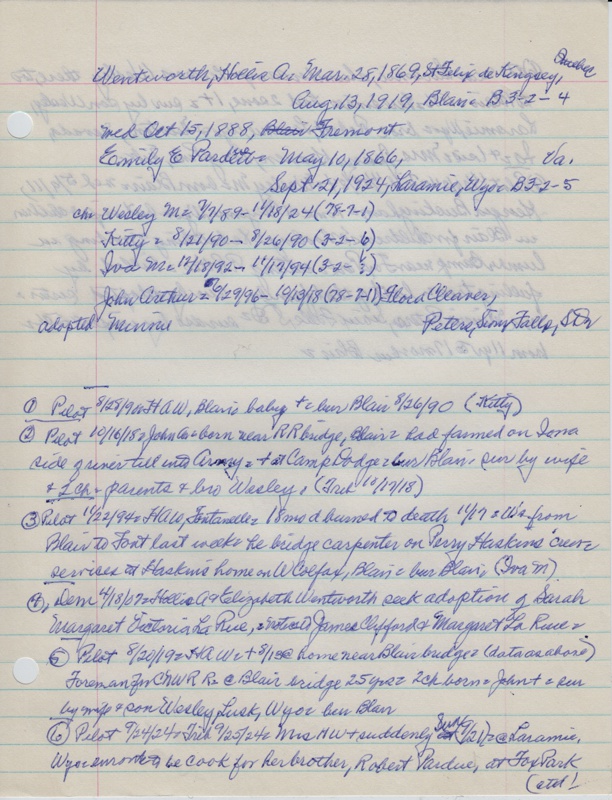 Quebec
Wentworth, Hollis A = Mar. 28, 1869, St Felix de Kingsey,
Aug. 13, 1919, Blair = B3-2-4
md Oct 15, 1888, Blair Fremont
Emily E Pardett = May 10, 1866, Va.
Sept. 21, 1924, Laramie, Wyo = B3-2-5
ch = Wesley M = 7/7/89 - 11/18/24 (78-7-1)
Kitty = 8/21/90 - 8/26/90 (3-2-6)
Iva M = 12/18/92 - 11/17/94 (3-2-?)
John Arthur = 6/29/96 - 10/13/18 (78-7-1) Flora Cleaver,
adopted Minnie Peters, Sioux Falls, S D
① Pilot 8/28/90 = H A W, Blair = baby + = bur Blair 8/26/90 (Kitty)
② Pilot 10/16/18 = John = born near RR bridge, Blair = had farmed on Iowa
side of river till into Army = + at Camp Dodge = bur Blair, sur by wife
+ 1 ch = parents + bro Wesley, (Trib 10/17/18)
③ Pilot 11/22/94 = HAW, Fontanelle = 18 mo d burned to death 11/17 = W's from
Blair to Font last week = he bridge carpenter on Perry Haskins' crew =
services at Haskins home on W Colfax, Blair = bur Blair (Iva M.)
④, Dem 4/18/07 = Hollis A + Elizabeth Wentworth seek adoption of Sarah
Margaret Victoria La Rue, = James Clifford + Margaret La Rue =
⑤ Pilot 8/20/19 = H A W = + 8/13 @ home near Blair bridge = (data as above)
Foreman for Ch N W R R = @ Blair bridge 25 yrs = 2 ch born = John + = sur
by wife + son Wesley, Lusk, Wyo = bur Blair
⑥ Pilot 9/24/24 + Trib 9/25/24 = Mrs H W + suddenly Sun 9/21 = @ Laramie,
Wyo = enroute to be cook for her brother, Robert Pardue, at Fox Park
(ctd!